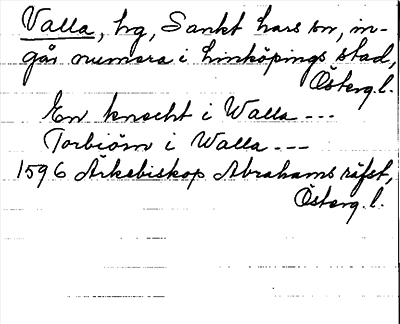 Valla, hg, Sankt Lars sn, in-
går numera i Linköpings stad,
Österg. l.
En knecht i Walla ---
Torbiörn i Walla ---
1596 Ärkebiskop Abrahams räfst,
Österg. l.